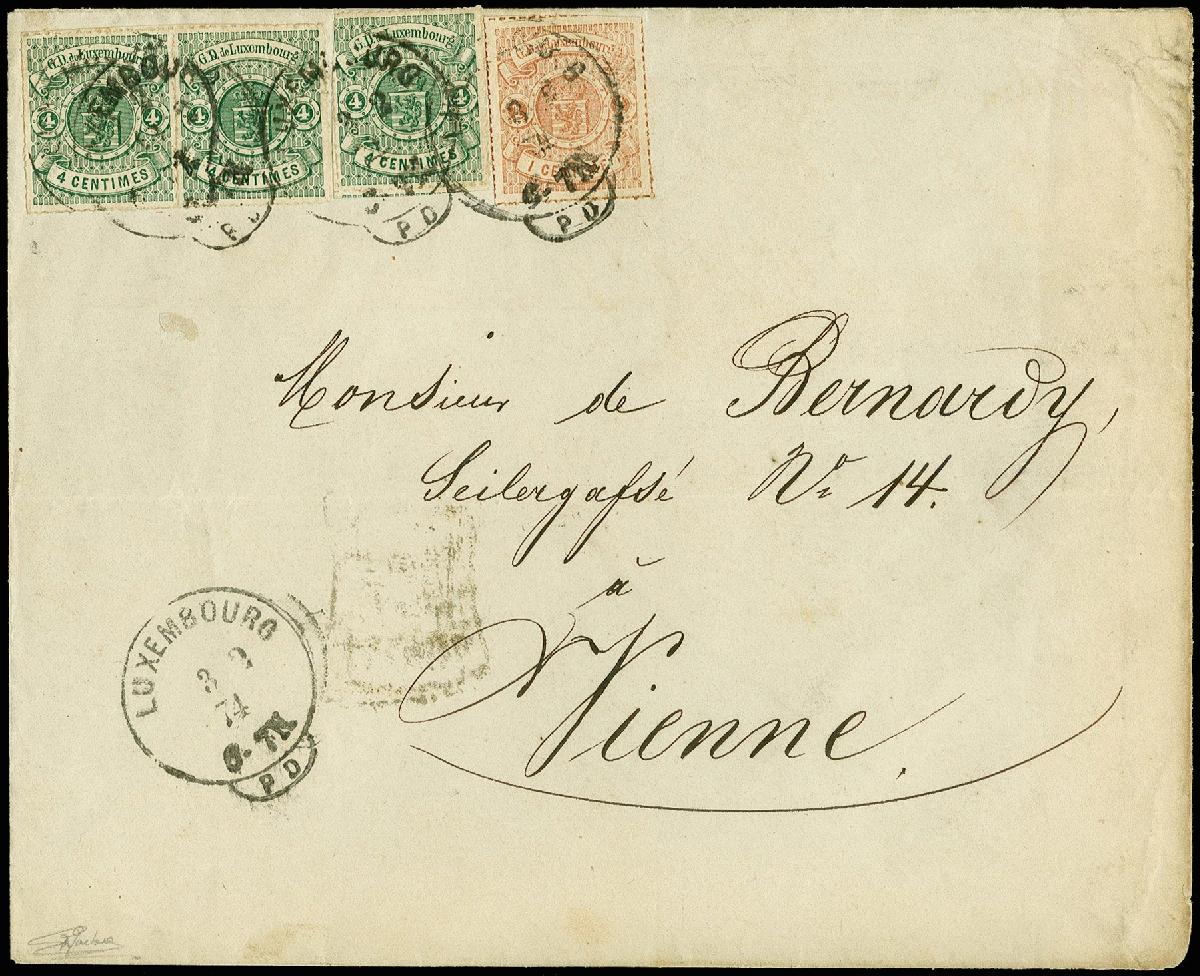 G.D. de Luxembourg
4 4
4 CENTIMES
G.D. de Luxembourg
4 4
4 CENTIMES
G.D. de Luxembourg
4 4
4 CENTIMES
de Luxembourg
1 CE
P D
P D
P D
Monsieur de Bernardy,
Seilergaſsé No 14.
à
Vienne.
LUXEMBOURG
3 2
74
6-7N
P D